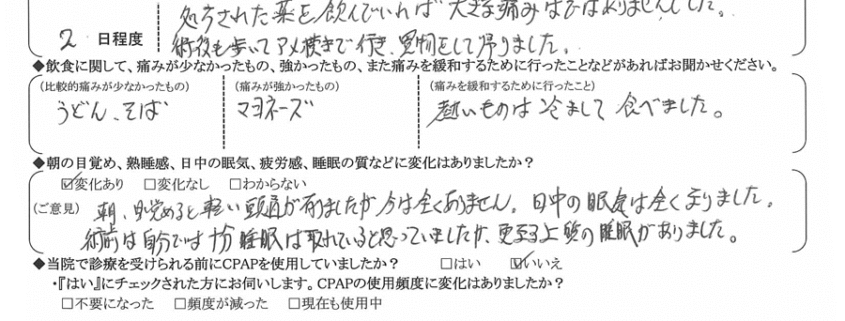 処方された薬を飲んでいれば大きな痛みはではありませんでした。
2 日程度 術後も歩いてアメ横まで行き、買物をして帰りました。
◆飲食に関して、痛みが少なかったもの、強かったもの、また痛みを緩和するために行ったことなどがあればお聞かせください。
(比較的痛みが少なかったもの) (痛みが強かったもの) (痛みを緩和するために行ったこと)
うどん、そば マヨネーズ 熱いものは冷まして食べました。
◆朝の目覚め、熟睡感、日中の眠気、疲労感、睡眠の質などに変化はありましたか?
☑変化あり □変化なし □わからない
(ご意見) 朝、目覚めると軽い頭痛が有りましたが今は全くありません。日中の眠気は全く なりました。
術前は自分では十分睡眠は取れていると思っていましたが、更なる上質の睡眠がありました。
◆当院で診療を受けられる前にCPAPを使用していましたか? □はい ☑いいえ
・『はい』にチェックされた方にお伺いします。CPAPの使用頻度に変化はありましたか?
□不要になった □頻度が減った □現在も使用中